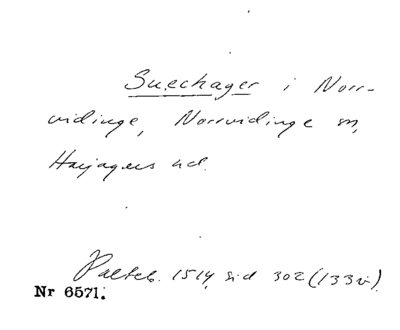 Suechager i Norr-
vidinge, Norrvidinge sn,
Harjagers hd.
Palteb. 1514, sid 302 (133v).
Nr 6571.